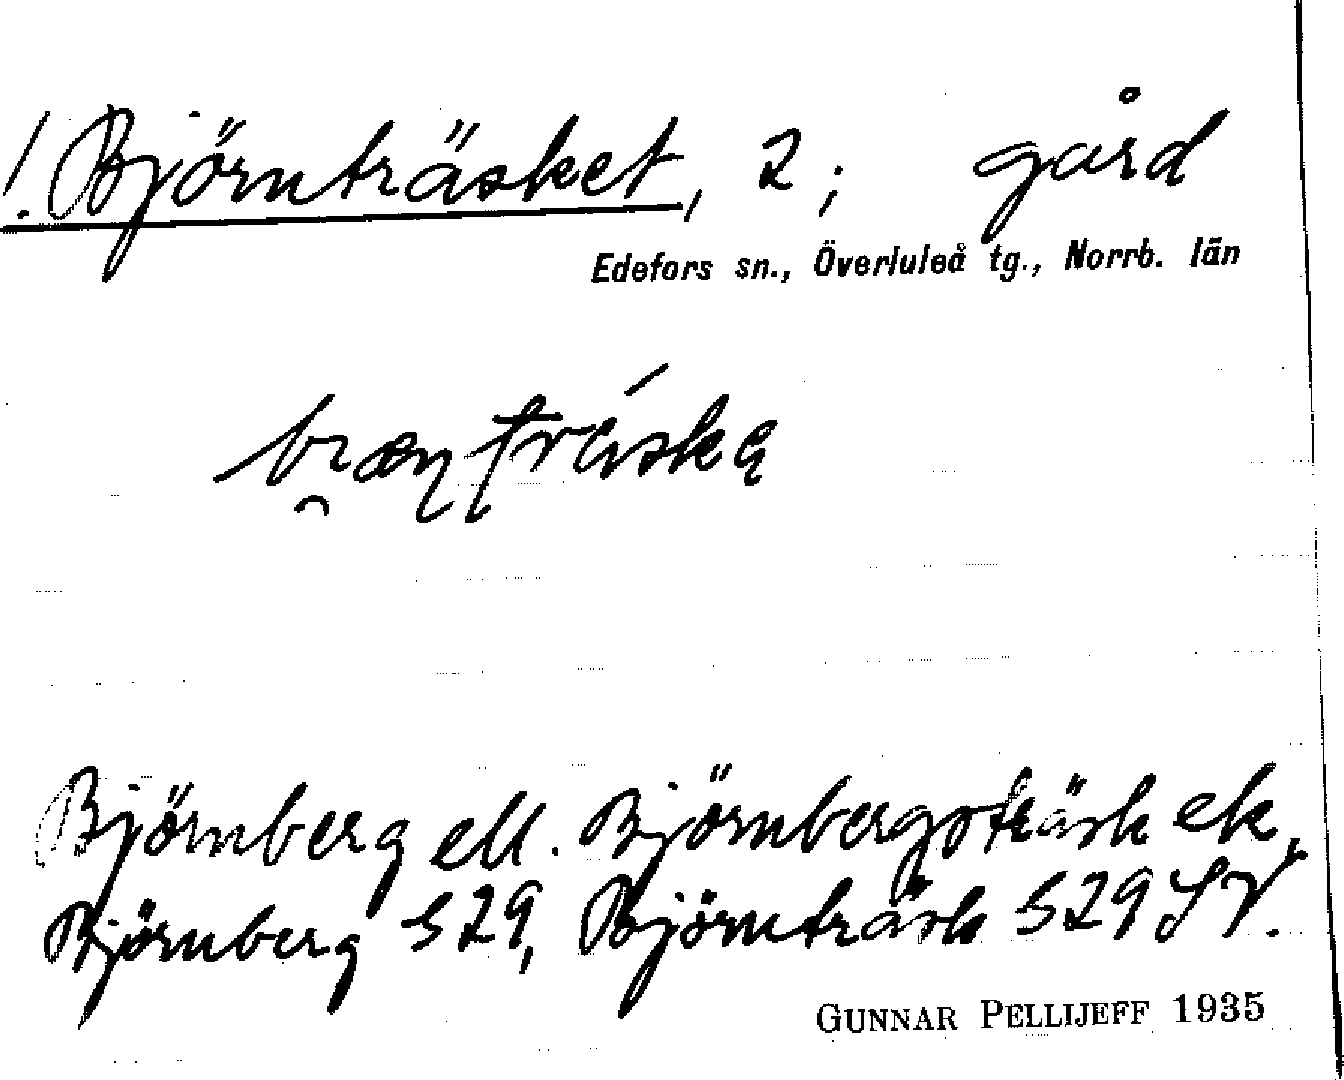 ! Björnträsket, 2; gård
Edefors sn., Överluleå tg., Norrb. län
Björnberg ell. Björnbergsträsk ek,
Björnberg S29, Björnträsk S29 SV.
GUNNAR PELLIJEFF 1935